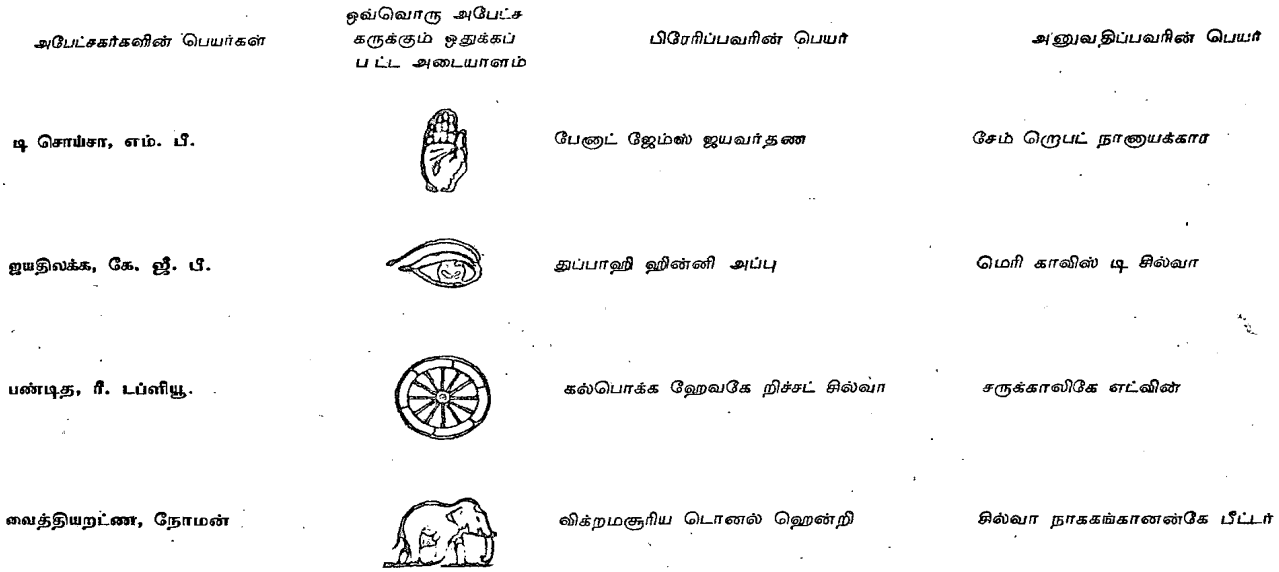 அபேட்சகர்களின் பெயர்கள்
ஒவ்வொரு அபேட்ச
கருக்கும் ஒதுக்கப்
பட்ட அடையாளம்
பிரேரிப்பவரின் பெயர்
அனுவதிப்பவரின் பெயர்
டி சொய்சா, எம். பீ.
பேனாட் ஜேம்ஸ் ஜயவர்தண
சேம் றெபட் நானாயக்கார
ஜயதிலக்க, கே. ஜீ. பீ.
துப்பாஹி ஹின்னி அப்பு
மெரி காலிஸ் டி சில்வா
பண்டித, ரீ. டப்ளியூ.
கல்பொக்க ஹேவகே றிச்சட் சில்வா
சருக்காலிகே எட்வின்
வைத்தியறட்ண, நோமன்
விக்றமசூரிய டொனல் ஹென்றி
சில்வா நாககங்கானன்கே பீட்டர்